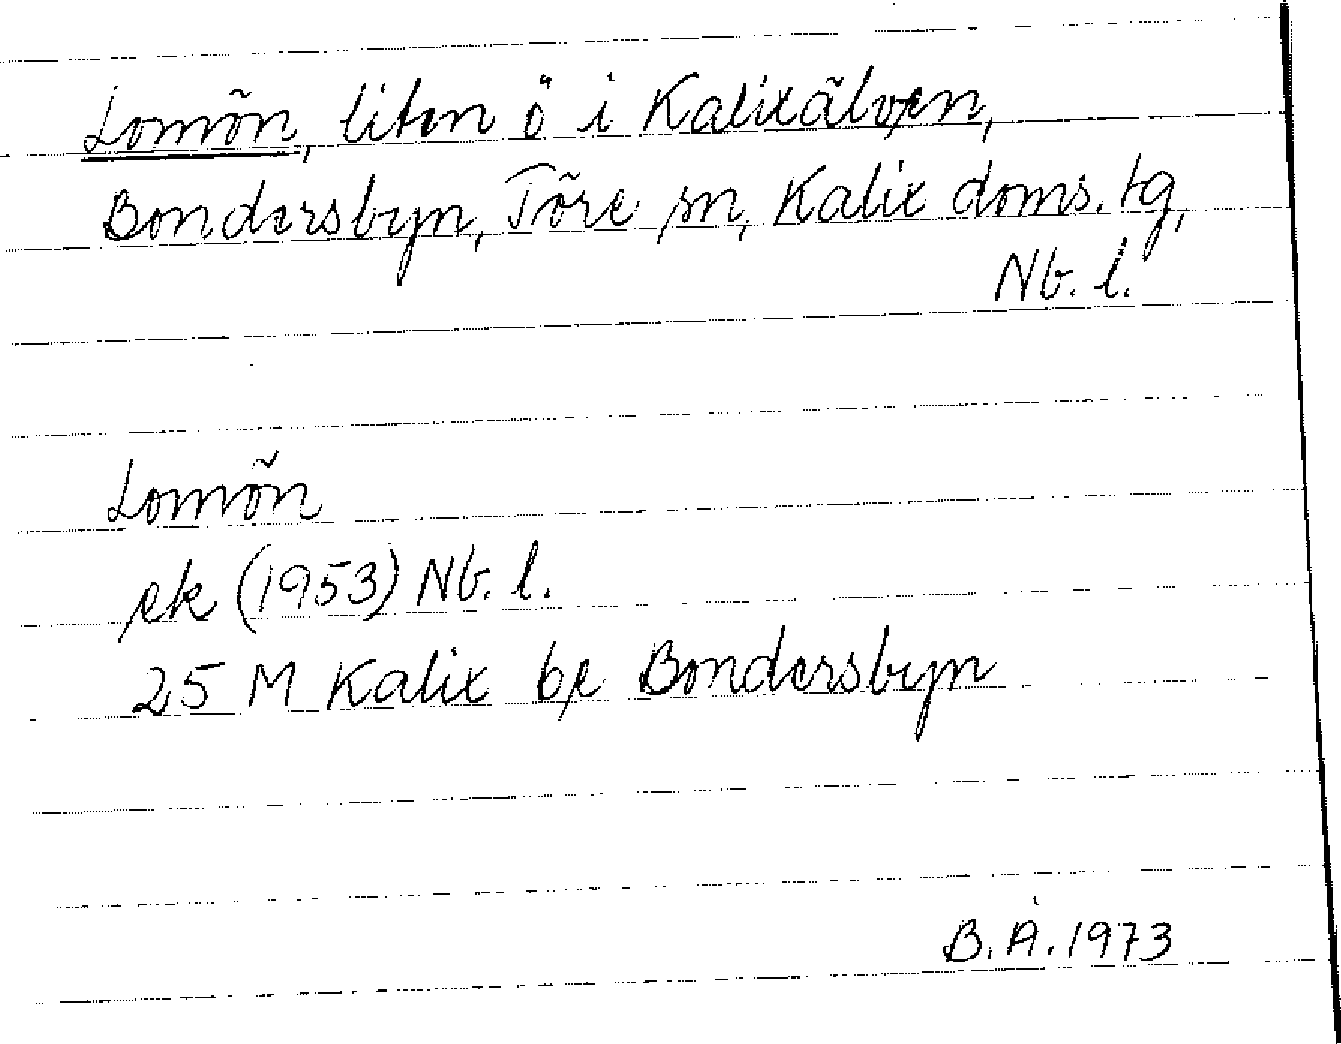 Lomön, liten ö i Kalixälven,
Bondersbyn, Töre sn, Kalix doms. tg,
Nb. l.
Lomön
ek (1953) Nb. l.
25 M Kalix be Bondersbyn
B. Å. 1973